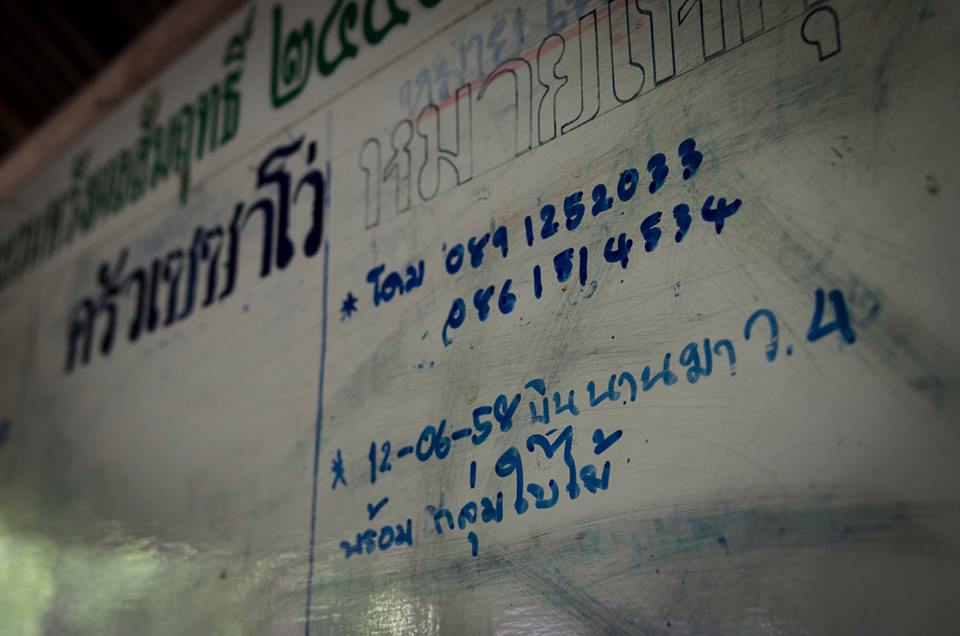 ๒๕๕
ครัวเซซาโว่
หมายเหตุ
* โดม 089 1252033
086 1514534
* 12-06-58 มีนนานมา ว. 4
พร้อม กลุ่มใบไม้